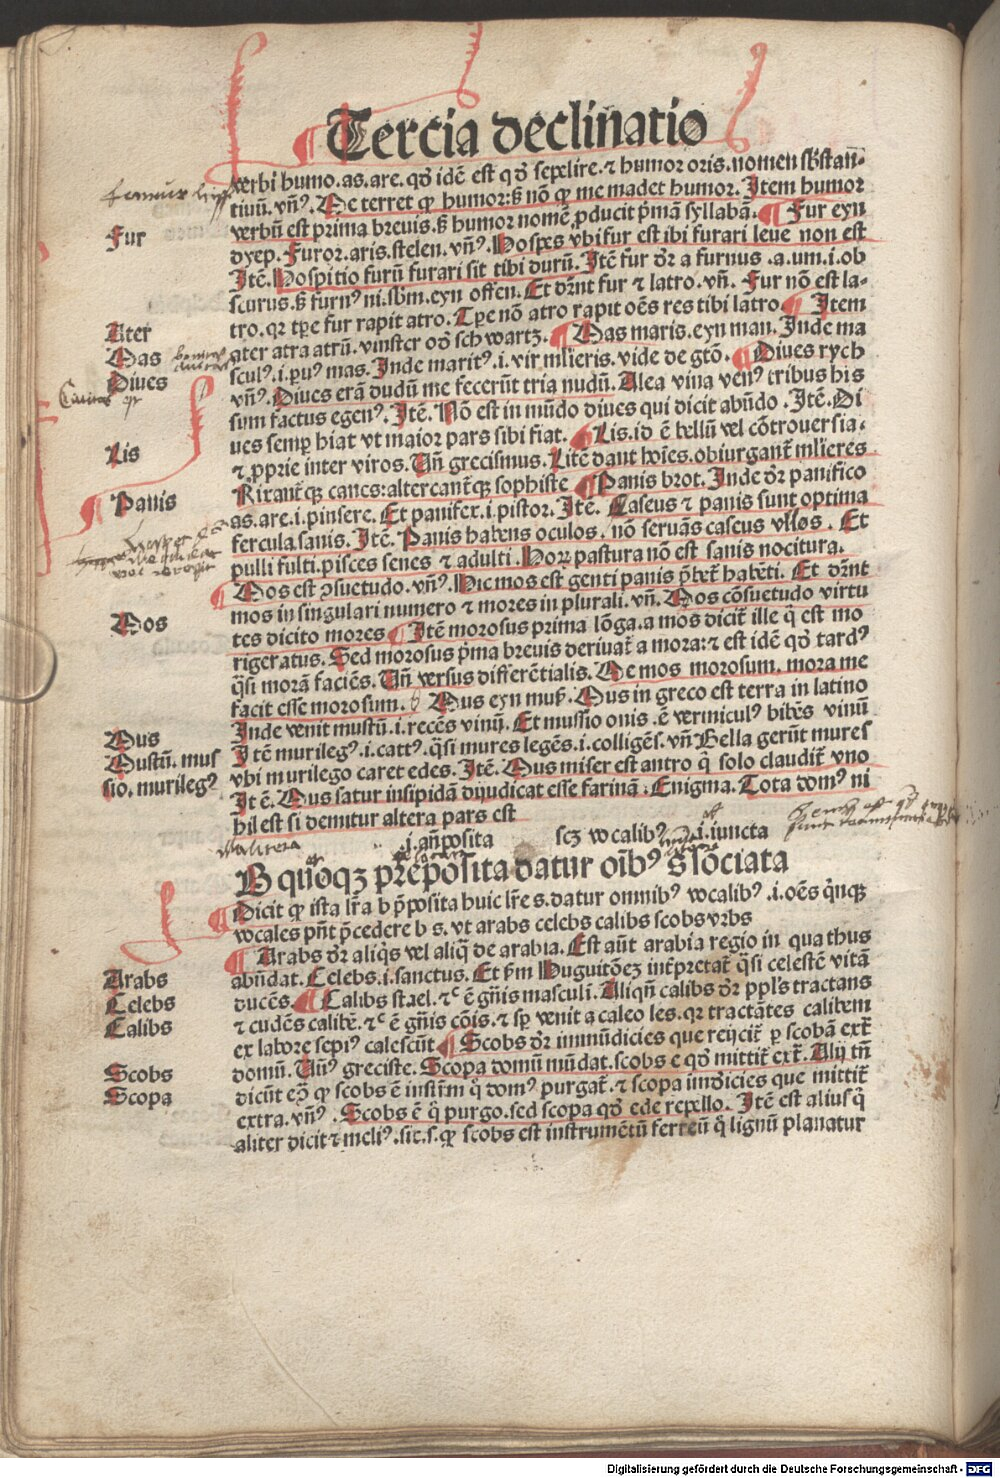 Tercia declinatio
verbi humo.as.are.qđ idē est qđ sepelire.⁊ humor oris.nomen sbstan⸗
tiuū.vñꝰ.Me terret ꝙ humor:sꝫ nō ꝙ me madet humor.Item humor
verbū est prima breuis.sꝫ humor nomē ꝓducit pṁā syllabā. Fur eyn
Fur
dyep.Furor.aris.stelen.vñꝰ.Hospes vbi fur est ibi furari leue non est
Itē.Hospitio furū furari sit tibi durū.Itē fur dr̄ a furnus .a.um.i.ob
scurus.sꝫ furnꝰ ni.sbm.eyn offen.Et dr̄nt fur ⁊ latro.vñ. Fur nō est la⸗
tro.qr tꝑe fur rapit atro.Tꝑe nō atro rapit oēs res tibi latro. Item
Ater
ater atra atrū.vinster oď schwartz. Mas maris.eyn man.Inde ma
Mas
sculꝰ.i.ꝑuꝰ mas.Inde maritꝰ.i.vir mlieris.vide de gtō. Diues rych
Diues
vñꝰ.Diues erā dudū me fecerūt tria nudū.Alea vina venꝰ tribus his
sum factus egenꝰ.Itē.Nō est in mūdo diues qui dicit abūdo.Itē.Di
ues semꝑ hiat vt maior pars sibi fiat. Lis.id ē bellū vel cōtrouersia.
Lis
⁊ ꝓprie inter viros.Uñ grecismus.Litē dant hoīes.obiurgant̄ mlieres
Rixant̄qꝫ canes:altercant̄qꝫ sophiste Panis brot.Inde dr̄ panifico
Panis
as.are.i.pinsere.Et panifex.i.pistor.Itē. Caseus ⁊ panis sunt optima
fercula sanis.Itē.Panis habens oculos. nō seruās caseus vllos. Et
pulli fulti.pisces senes ⁊ adulti.Horꝝ pastura nō est sanis nocitura.
Mos est ꝯsuetudo.vñꝰ.Hic mos est genti panis p̄bet̄ habēti. Et dr̄nt
mos in singulari numero ⁊ mores in plurali.vñ.Mos cōsuetudo virtu
Mos
tes dicito mores Itē morosus prima lōga.a mos dicit̄ ille q̄ est mo
rigeratus.Sed morosus pṁa breuis deriuat̄ a mora:⁊ est idē qđ tardꝰ
q̄si morā faciēs.Uñ versus differētialis.Me mos morosum.mora me
facit esse morosum. Mus eyn muß.Mus in greco est terra in latino
Inde venit mustū.i.recēs vinū.Et mussio onis .ē vermiculꝰ bibēs vinū
Mus
Itē murilegꝰ.i.cattꝰ.q̄si mures legēs.i.colligēs.vñ Bella gerūt mures
Mustū. mus
vbi murilego caret edes.Itē.Mus miser est antro q̄ solo claudit̄ vno
sio. murilegꝰ
Itē.Mus satur insipidā dijudicat esse farinā.Enigma.Tota domꝰ ni
hil est si demitur altera pars est
.i.añposita scꝫ vocalibꝰ .i.iuncta
B quoqꝫ preposita datur oībꝰ s sociata
Dicit ꝙ ista lr̄a b p̄posita huic lr̄e s.datur omnibꝰ vocalibꝰ .i.oēs q̄nqꝫ
vocales pn̄t p̄cedere b s. vt arabs celebs calibs scobs vrbs
Arabs dr̄ aliq̄s vel aliq̄ de arabia.Est aūt arabia regio in qua thus
Arabs
abūdat.Celebs.i.sanctus.Et ꝑm Huguitōeꝫ int̄pretat̄ q̄si celestē vitā
Celebs
ducēs. Calibs stael.⁊ᶜ ē gn̄is masculi.Aliqn̄ calibs dr̄ ppl's tractans
Calibs
⁊ cudēs calibē.⁊ᶜ ē gn̄is cōis.⁊ sꝑ venit a caleo les.qr tractātes calibem
ex labore sepiꝰ calescūt Scobs dr̄ immūdicies que reijcit̄ ꝑ scobā ext̄
Scobs
domū.Uñꝰ greciste.Scopa domū mūdat.scobs e qđ mittit̄ ext̄.Alij tn̄
Scopa
dicūt eꝯ̄ ꝙ scobs ē instr̄m q̄ domꝰ purgat̄.⁊ scopa imūdicies que mittit̄
extra.vñꝰ.Scobs ē q̄ purgo.sed scopa qđ ede repello. Itē est aliusꝰ q̄
aliter dicit ⁊ meliꝰ.sic.s.ꝙ scobs est instrumētū ferreū q̄ lignū planatur
Digitalisierung gefördert durch die Deutsche Forschungsgemeinschaft - DFG